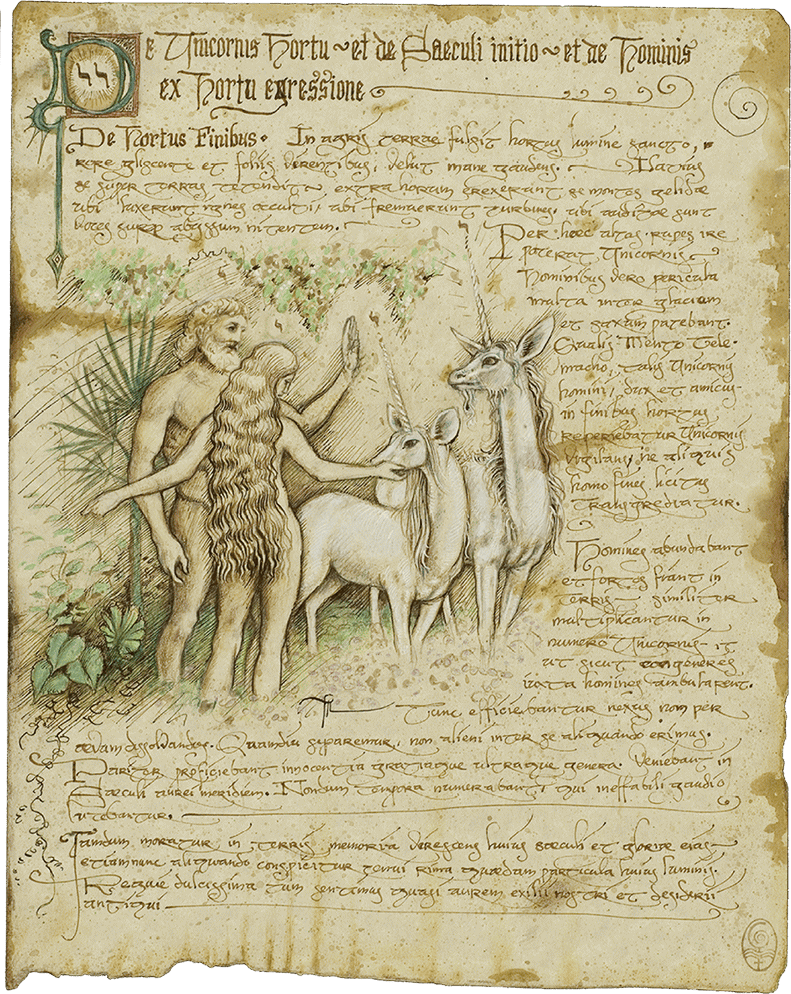 De Unicornis Hortu et de Saeculi initio et de Hominis
ex Hortu egressione
De Hortus Finibus. In agris terrae fulsit hortus lumine sancto,
rore gliscente et foliis virentibus, velut mane gaudens. Latius
se super terras tetendit, extra hortum erexerant se montes gelidae
ubi luxerunt ignes occulti, ubi fremuerunt turbines, ubi auditae sunt
voces super abyssum nitentem.
Per hoec altas rupes ire
poterat Unicornis
hominibus vero pericula
multa inter glaciem
et saxum patebant.
Qualis Mentor Tele-
macho, talis Unicornis
homini, dux et amicus
in finibus hortus
reperiebatur Unicornis
vigilans, ne aliquis
homo fines licitus
transgrediatur.
Homines abundabant
et fortes fiant in
terris similiter
multiplicantur in
numero Unicornis it
ut sicut congeneres
iuxta homines ambularent.
Tunc efficiebantur nexus non per
aevam dissolvandos. Quamdiu separemur, non alieni inter se aliquando erimus.
Pariter proficiebant innocentia gratiaque utraque genera. Veniebant in
Saeculi aurei meridiem. Nondum tempora numerabant, qui ineffabili gaudio
utebantur.
Tamdum moratur in terris memoria virescens huius saeculi et gloriae eius
etiamnunc aliquando conspicitur tenui rima quaedam particula huius luminis.
Requie dulcissima tum sentamus quasi aurem exilii nostri et desiderii
antiqui